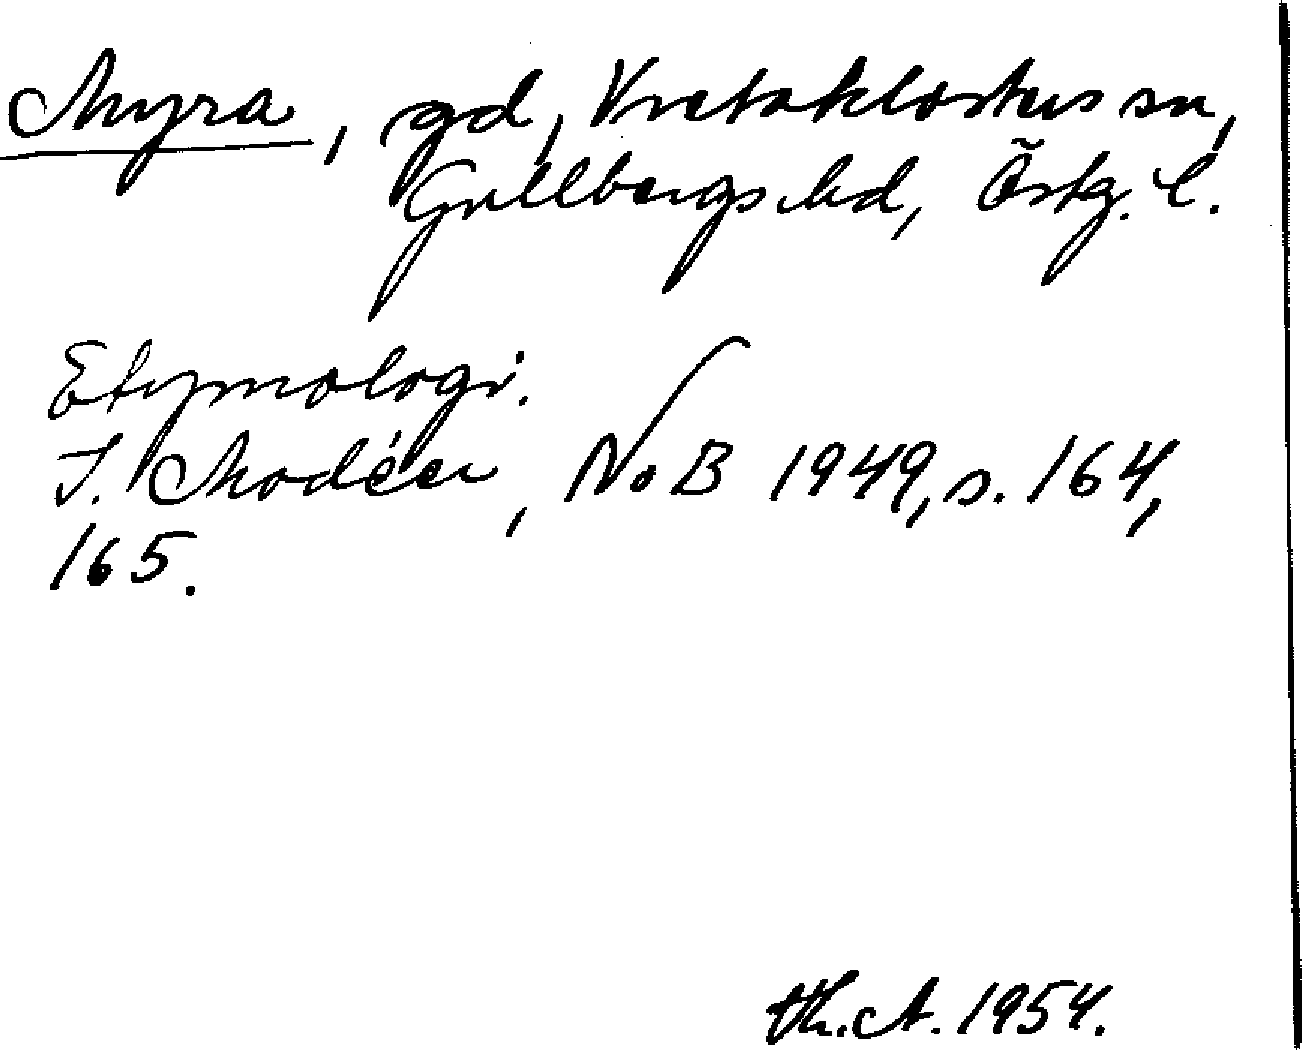 Myra, gd, Vretaklosters sn,
Gullbergs hd, Östg. l.
Etymologi.
I. Modéer, NoB 1949, s. 164,
165.
th. A. 1954.